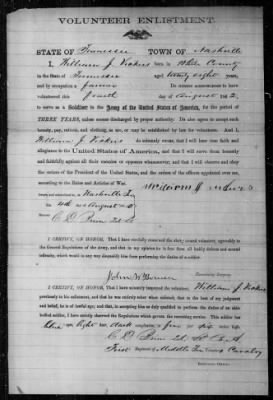 VOLUNTEER ENLISTMENT.
STATE OF Tennessee TOWN OF Nashville
I, William J. Vickers born in White County
in the State of Tennessee aged twenty eight years,
and by occupation a farmer Do HEREBY ACKNOWLEDGE to have
volunteered this fourth day of August 1862,
to serve as a Soldier in the Army of the United States of America, for the period of
THREE YEARS, unless sooner discharged by proper authority: Do also agree to accept such
bounty, pay, rations, and clothing, as are, or may be established by law for volunteers. And I,
William J Vickers do solemnly swear, that I will bear true faith and
allegiance to the United States of America, and that I will serve them honestly
and faithfully against all their enemies or opposers whomsoever; and that I will observe and obey
the orders of the President of the United States, and the orders of the officers appointed over me,
according to the Rules and Articles of War.
and subscribed, at Nashville
4th August
I CERTIFY, ON HONOR, That I have carefully examined the above named volunteer, agreeably to the
General Regulations of the Army, and that in my opinion he is free from all bodily defects and mental
infirmity, which would in any way disqualify him from performing the duties of a soldier.
Examining Surgeon.
I CERTIFY, ON HONOR, That I have minutely inspected the volunteer, William J. Vickers
previously to his enlistment, and that he was entirely sober when enlisted; that to the best of my judgment
and belief, he is of lawful age; and that, in accepting him as duly qualified to perform the duties of an able-
bodied soldier, I have strictly observed the Regulations which govern the recruiting service. This soldier has
blue eyes, light hair, dark complexion, is five feet six inches high.
First Regiment of Middle Tenn Cavalry
RECRUITING OFFICER.